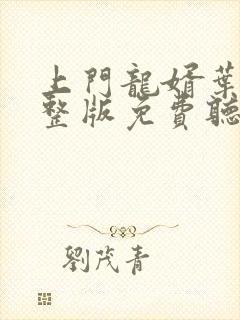 上門龍婿葉
整版免費聽
劉茂青